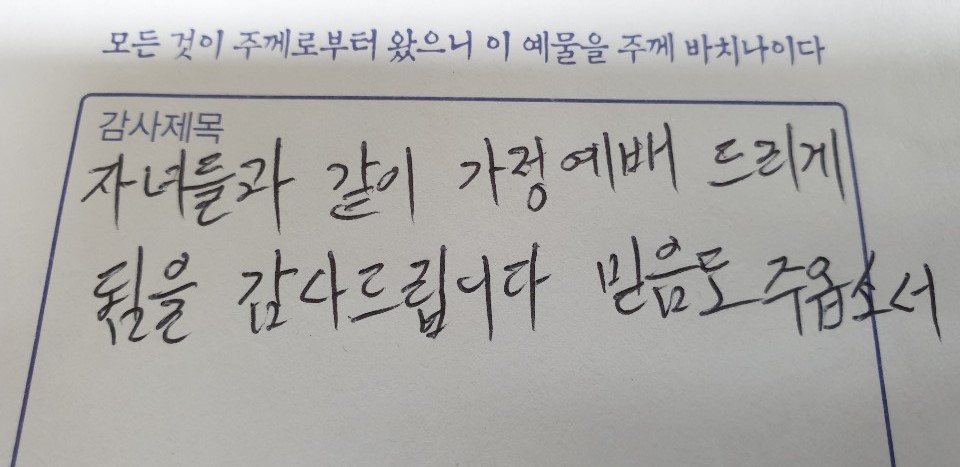 모든 것이 주께로부터 왔으니 이 예물을 주께 바치나이다
감사제목
자녀들과 같이 가정예배 드리게
됨을 감사드립니다 믿음도 주옵소서